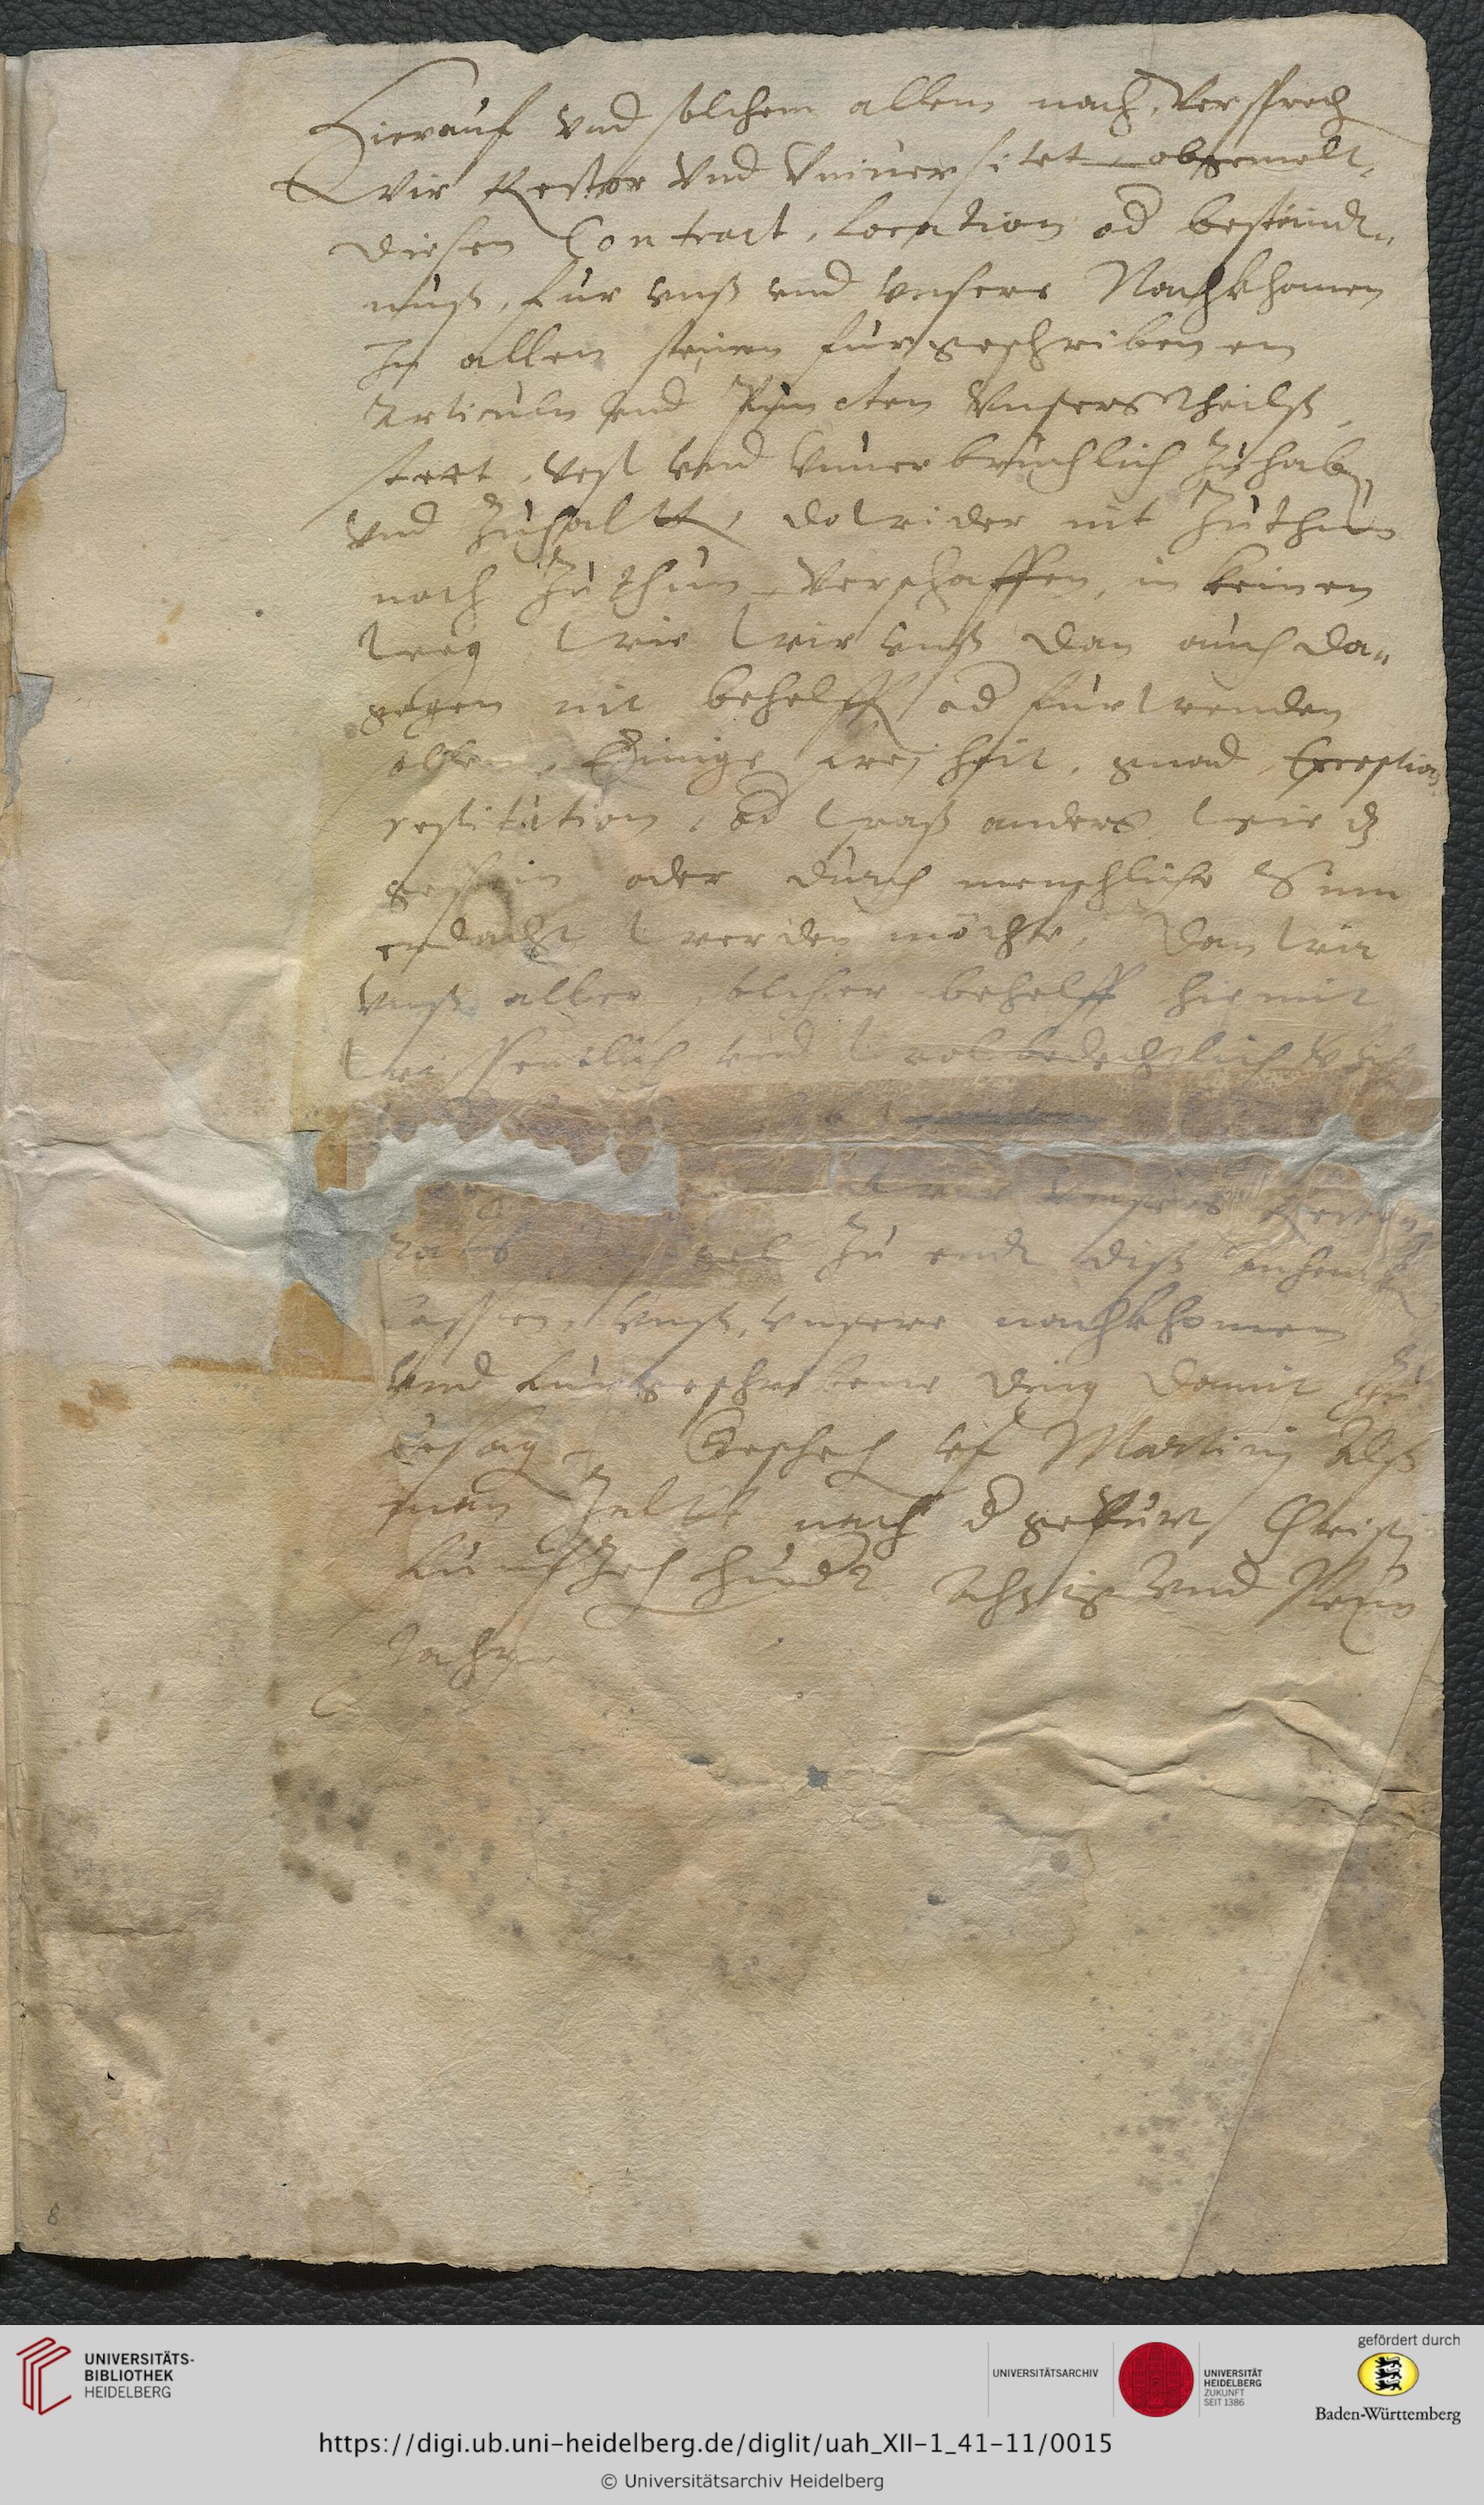 Hierauf vnd solchem allem nach, Versprech
Wir Rector Vnd Vniuersitet obgemelt,
diesen Contract, Location od bestendt„
nuß, fur vnß vnd vnsere Nachkhomen
In allen seinen furgeschribenen
Articuln vnd Puncten Vnsers theilß,
stett, vest vnd vnuerbrüchlich Zuhab
vnd Zuhaltt, dawider nit Zuthun
noch Zuthun Verschaffen, in keinen
weg, wie wir vnß dan auch da„
gegen nit behelff od furwenden
sollen, Einige freyheit, gnad, Exception
restitution, od waß anders wie dz
gesein oder durch menschliche Sinn
erdacht werden möchte, dan wir
vnß aller solcher behelff hiemit
wissentlich vnd wolbedechtlich
vnsers
Zu endt diß anhenck
lassen, vnß, vnsere nachkhomen
vnd furgeschribene ding damit Zu
besag Geschech vf Martinj Alß
man Zeltt nach d geburt Christj
funffZeh hundt Achtzig Vnd Neun
Jahr
8
UNIVERSITÄTS-
BIBLIOTHEK
HEIDELBERG
UNIVERSITÄTSARCHIV
UNIVERSITÄT
HEIDELBERG
ZUKUNFT
SEIT 1386
gefördert durch
Baden-Württemberg
https://digi.ub.uni-heidelberg.de/diglit/uah_XII-1_41-11/0015
© Universitätsarchiv Heidelberg